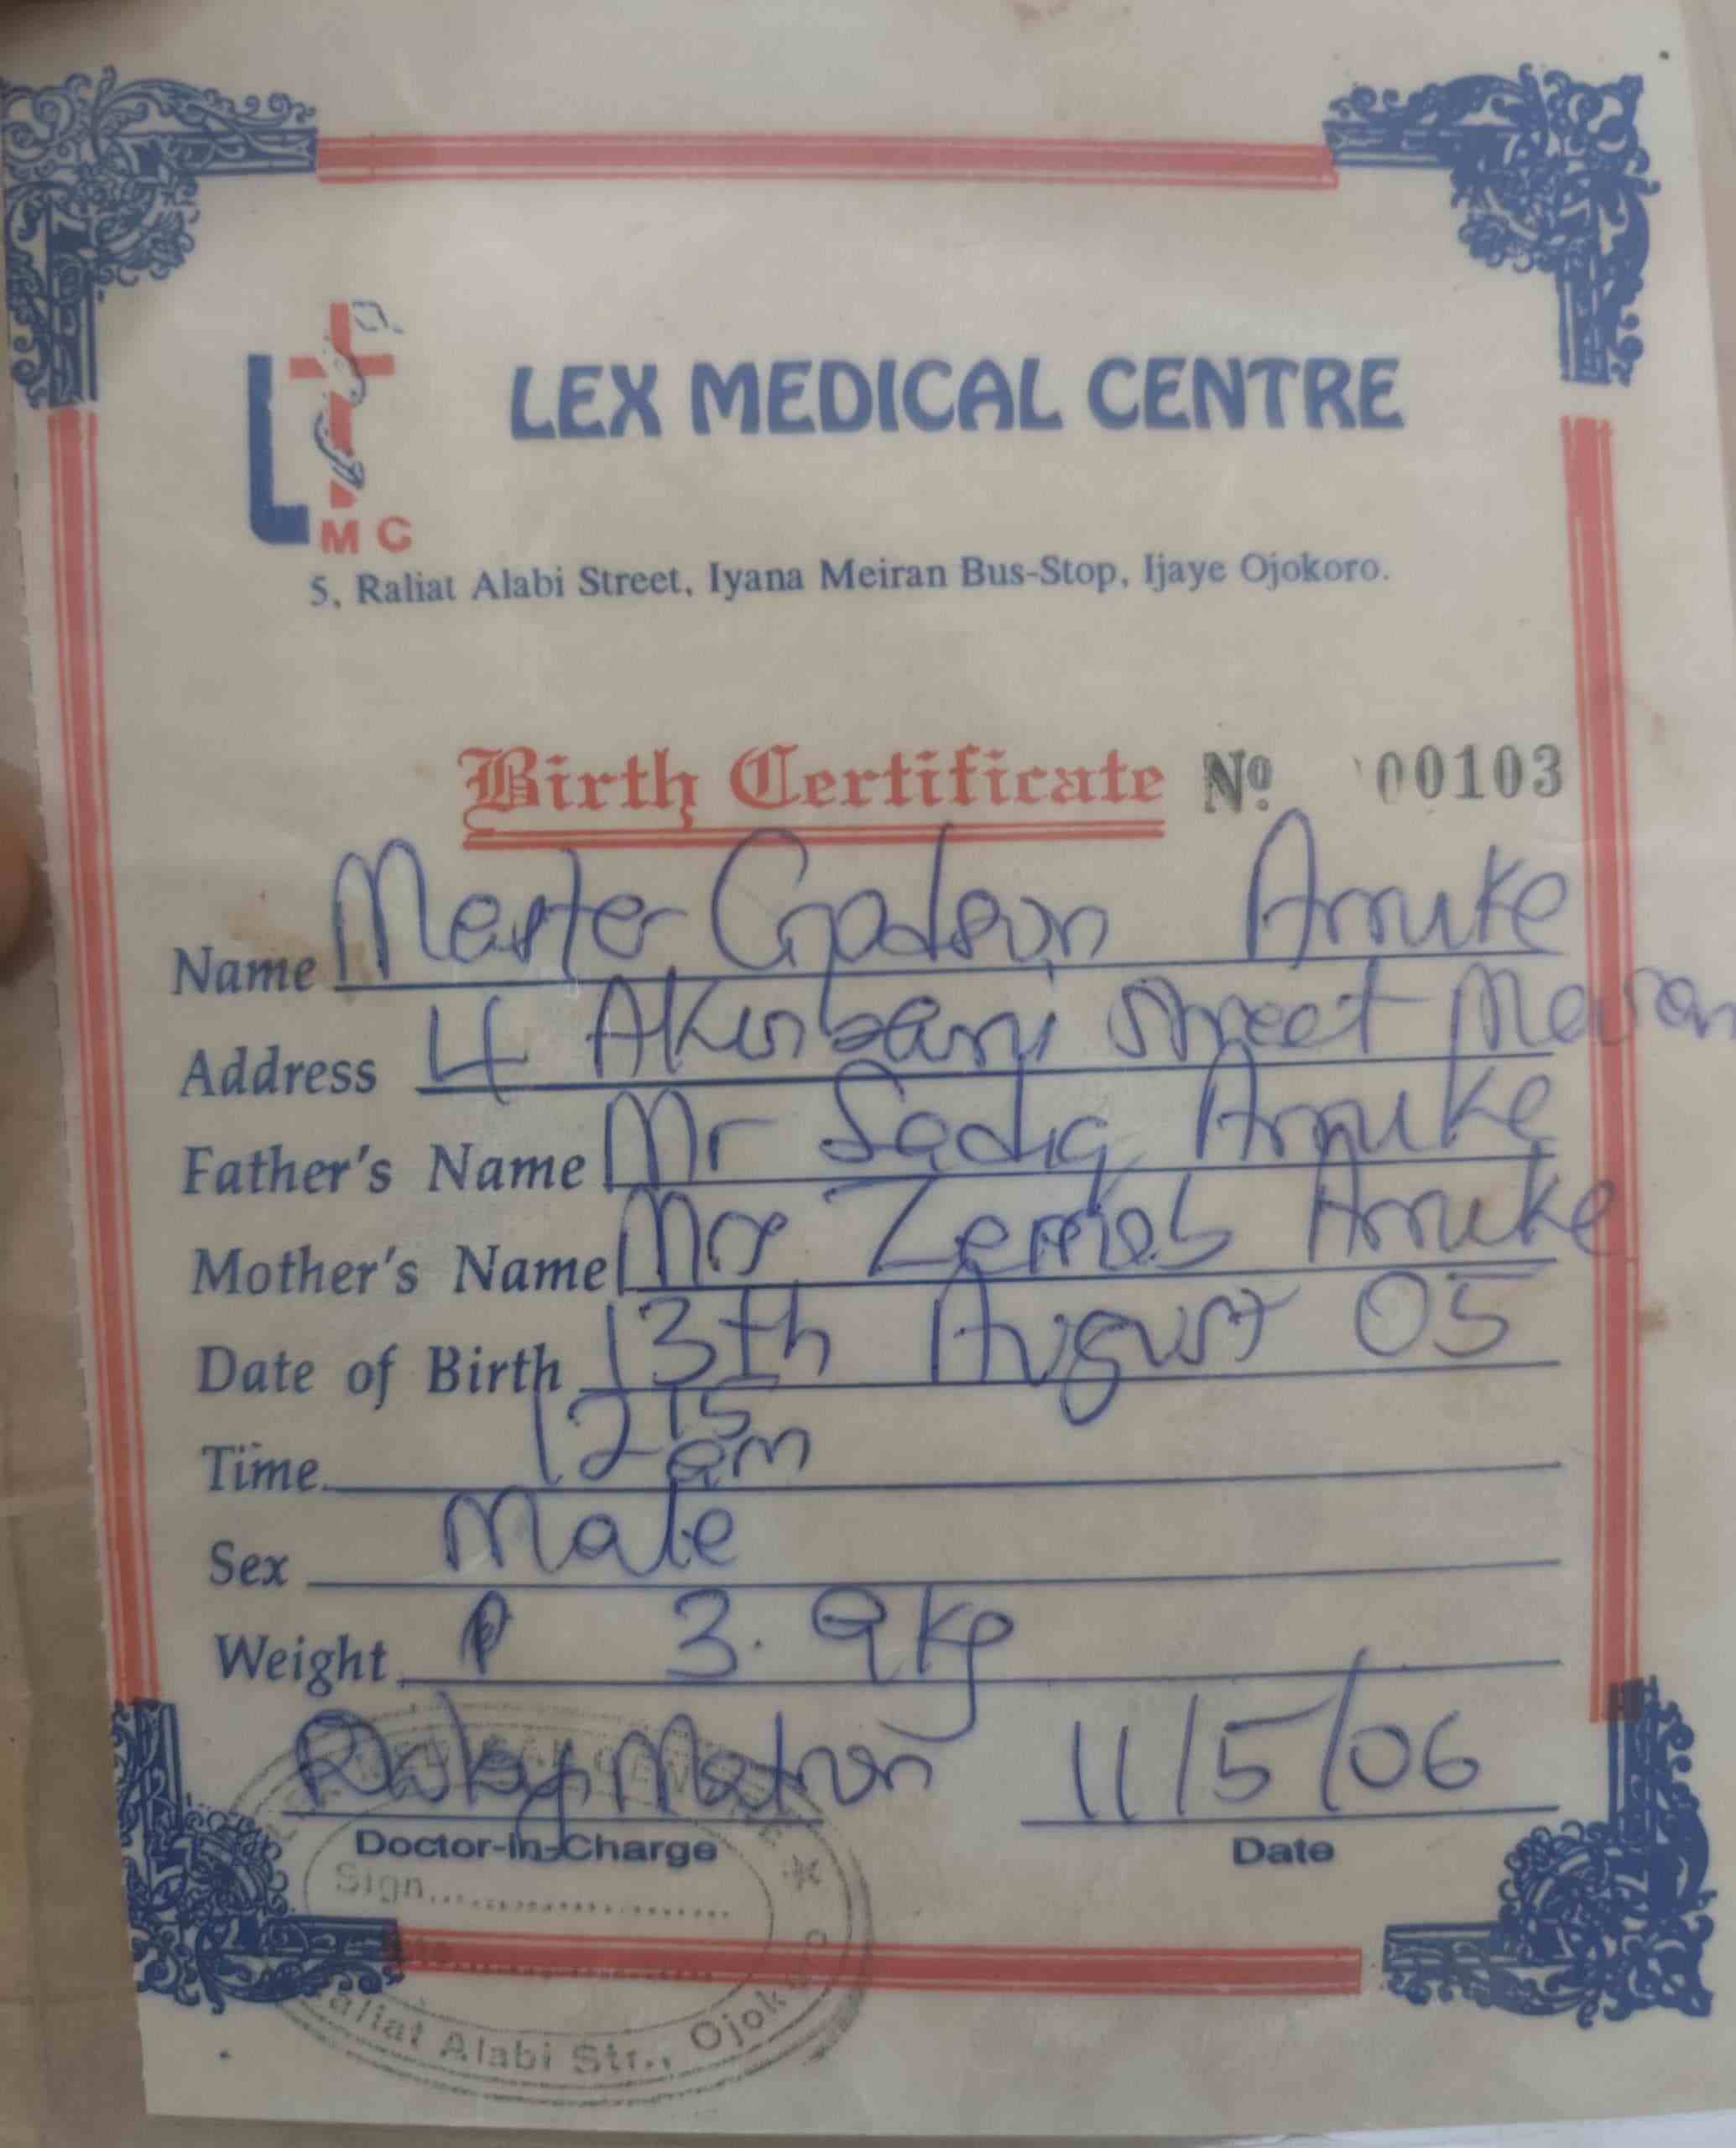 L MC
LEX MEDICAL CENTRE
5, Raliat Alabi Street, Iyana Meiran Bus-Stop, Ijaye Ojokoro.
Birth Certificate Nº 00103
Name Master Godson Anuke
Address 4 Akinbami Street Meiran
Father's Name Mr Sadiq Anuke
Mother's Name Mrs Zainab Anuke
Date of Birth 13th August 05
Time 12 15 am
Sex Male
Weight 3.9kg
Matron 11/5/06
Doctor-In-Charge Date
Sign
aliat Alabi Str., Ojok